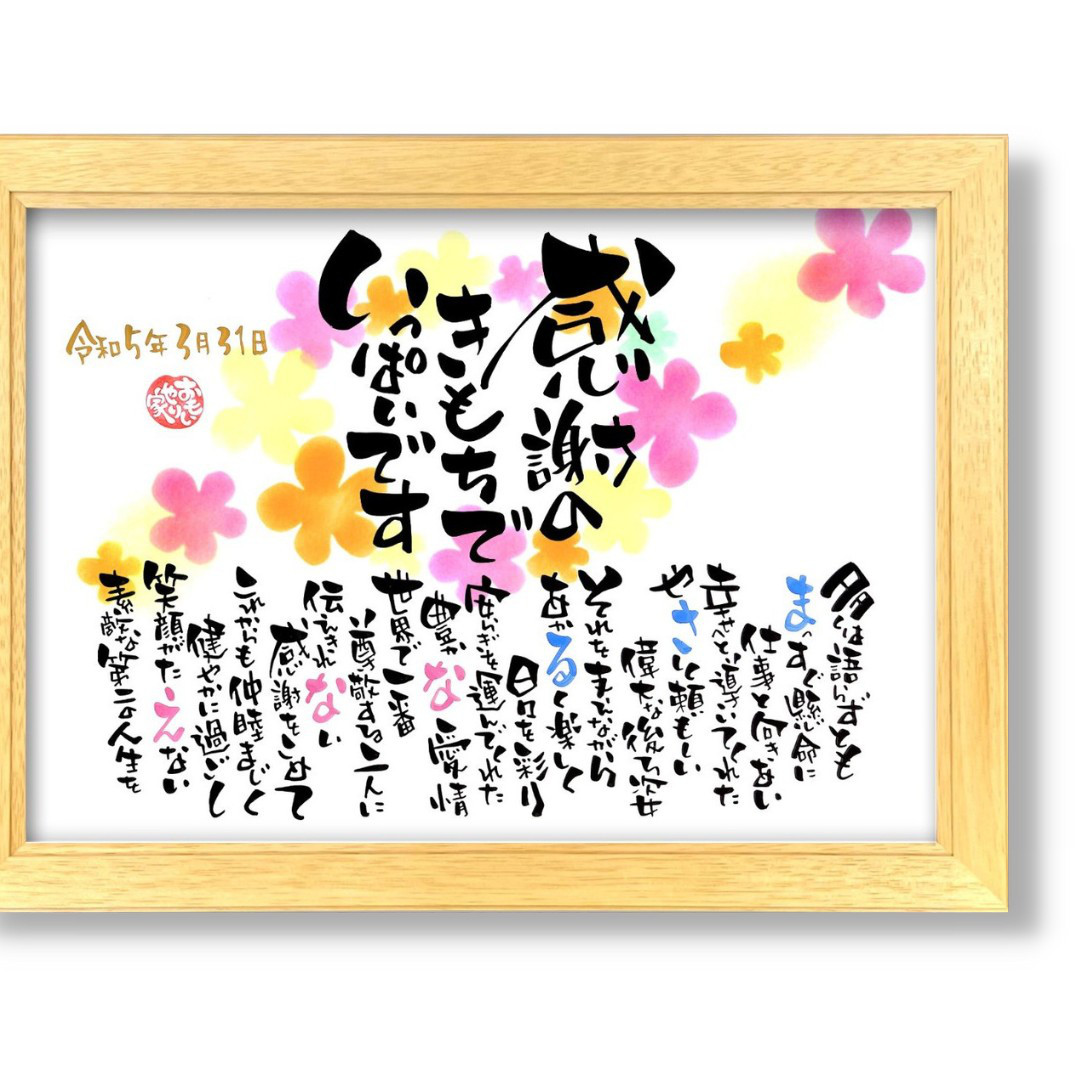 感謝の
きもちで
いっぱいです
令和5年3月31日
おもいやり家
多くは語らずとも
まっすぐ懸命に
仕事と向きあい
幸せへと導いてくれた
やさしく頼もしい
偉大な後ろ姿
それを支えながら
あかるく楽しく
日々を彩り
安らぎを運んでくれた
豊かな愛情
世界で一番
尊敬する二人に
伝えきれない
感謝をこめて
これからも仲睦まじく
健やかに過ごし
笑顔がたえない
素敵な第二の人生を